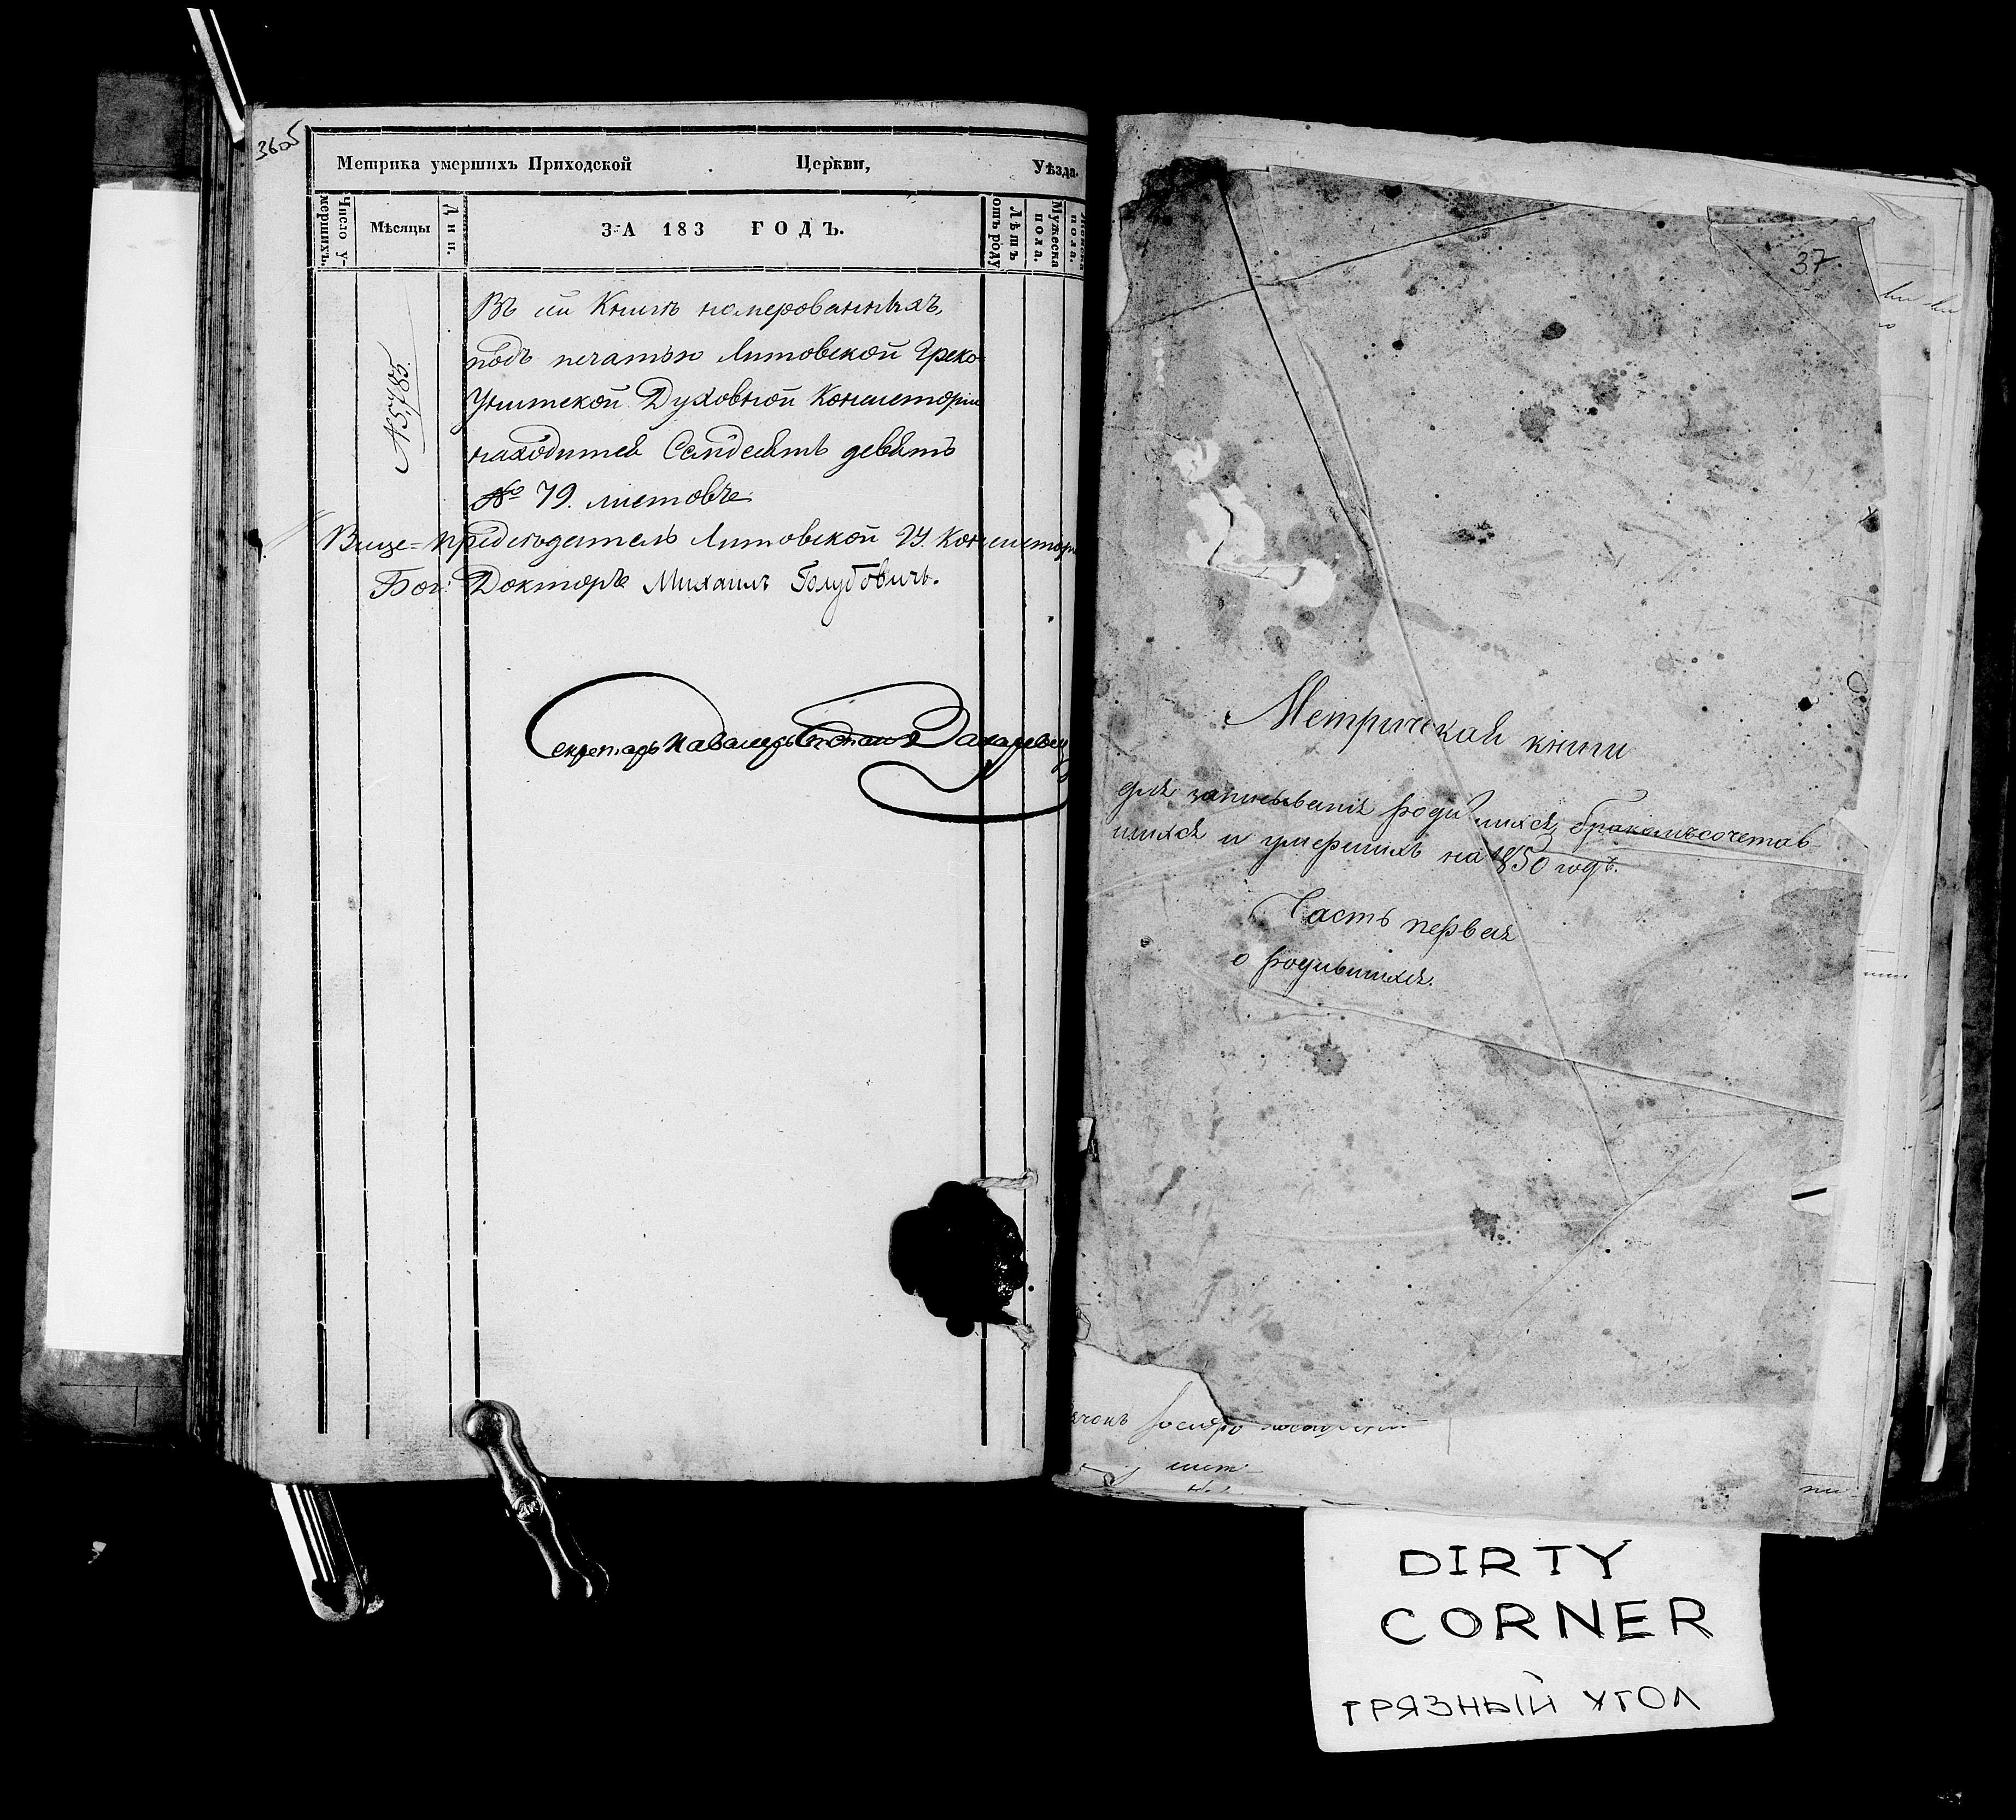 36об
Метрика умершихъ Приходской Церкви, Уѣзда.
Число умершихъ.
Мѣсяцы
Дни.
ЗА 183 ГОДЪ.
Лѣтъ отъ роду
Мужеска пола.
Женска пола.
№ 5785.
Въ сей Книгѣ номерованныхъ,
подъ печатью Литовской Греко
Унитской Духовной Консисторіи
находится Семдесятъ девять
№ 79. листовъ.
Вице-предсѣдатель Литовской ГУ. Консисторіи
Бог: Докторъ Михаилъ Голубовичъ.
Секретарь Кавалеръ
37
Метрическая книги
для записыванія родившихся, бракомъсочетав
шихся и умершихъ на 1850 годъ.
Часть первая
о родившихся.
DIRTY
CORNER
ГРЯЗНЫЙ УГОЛ